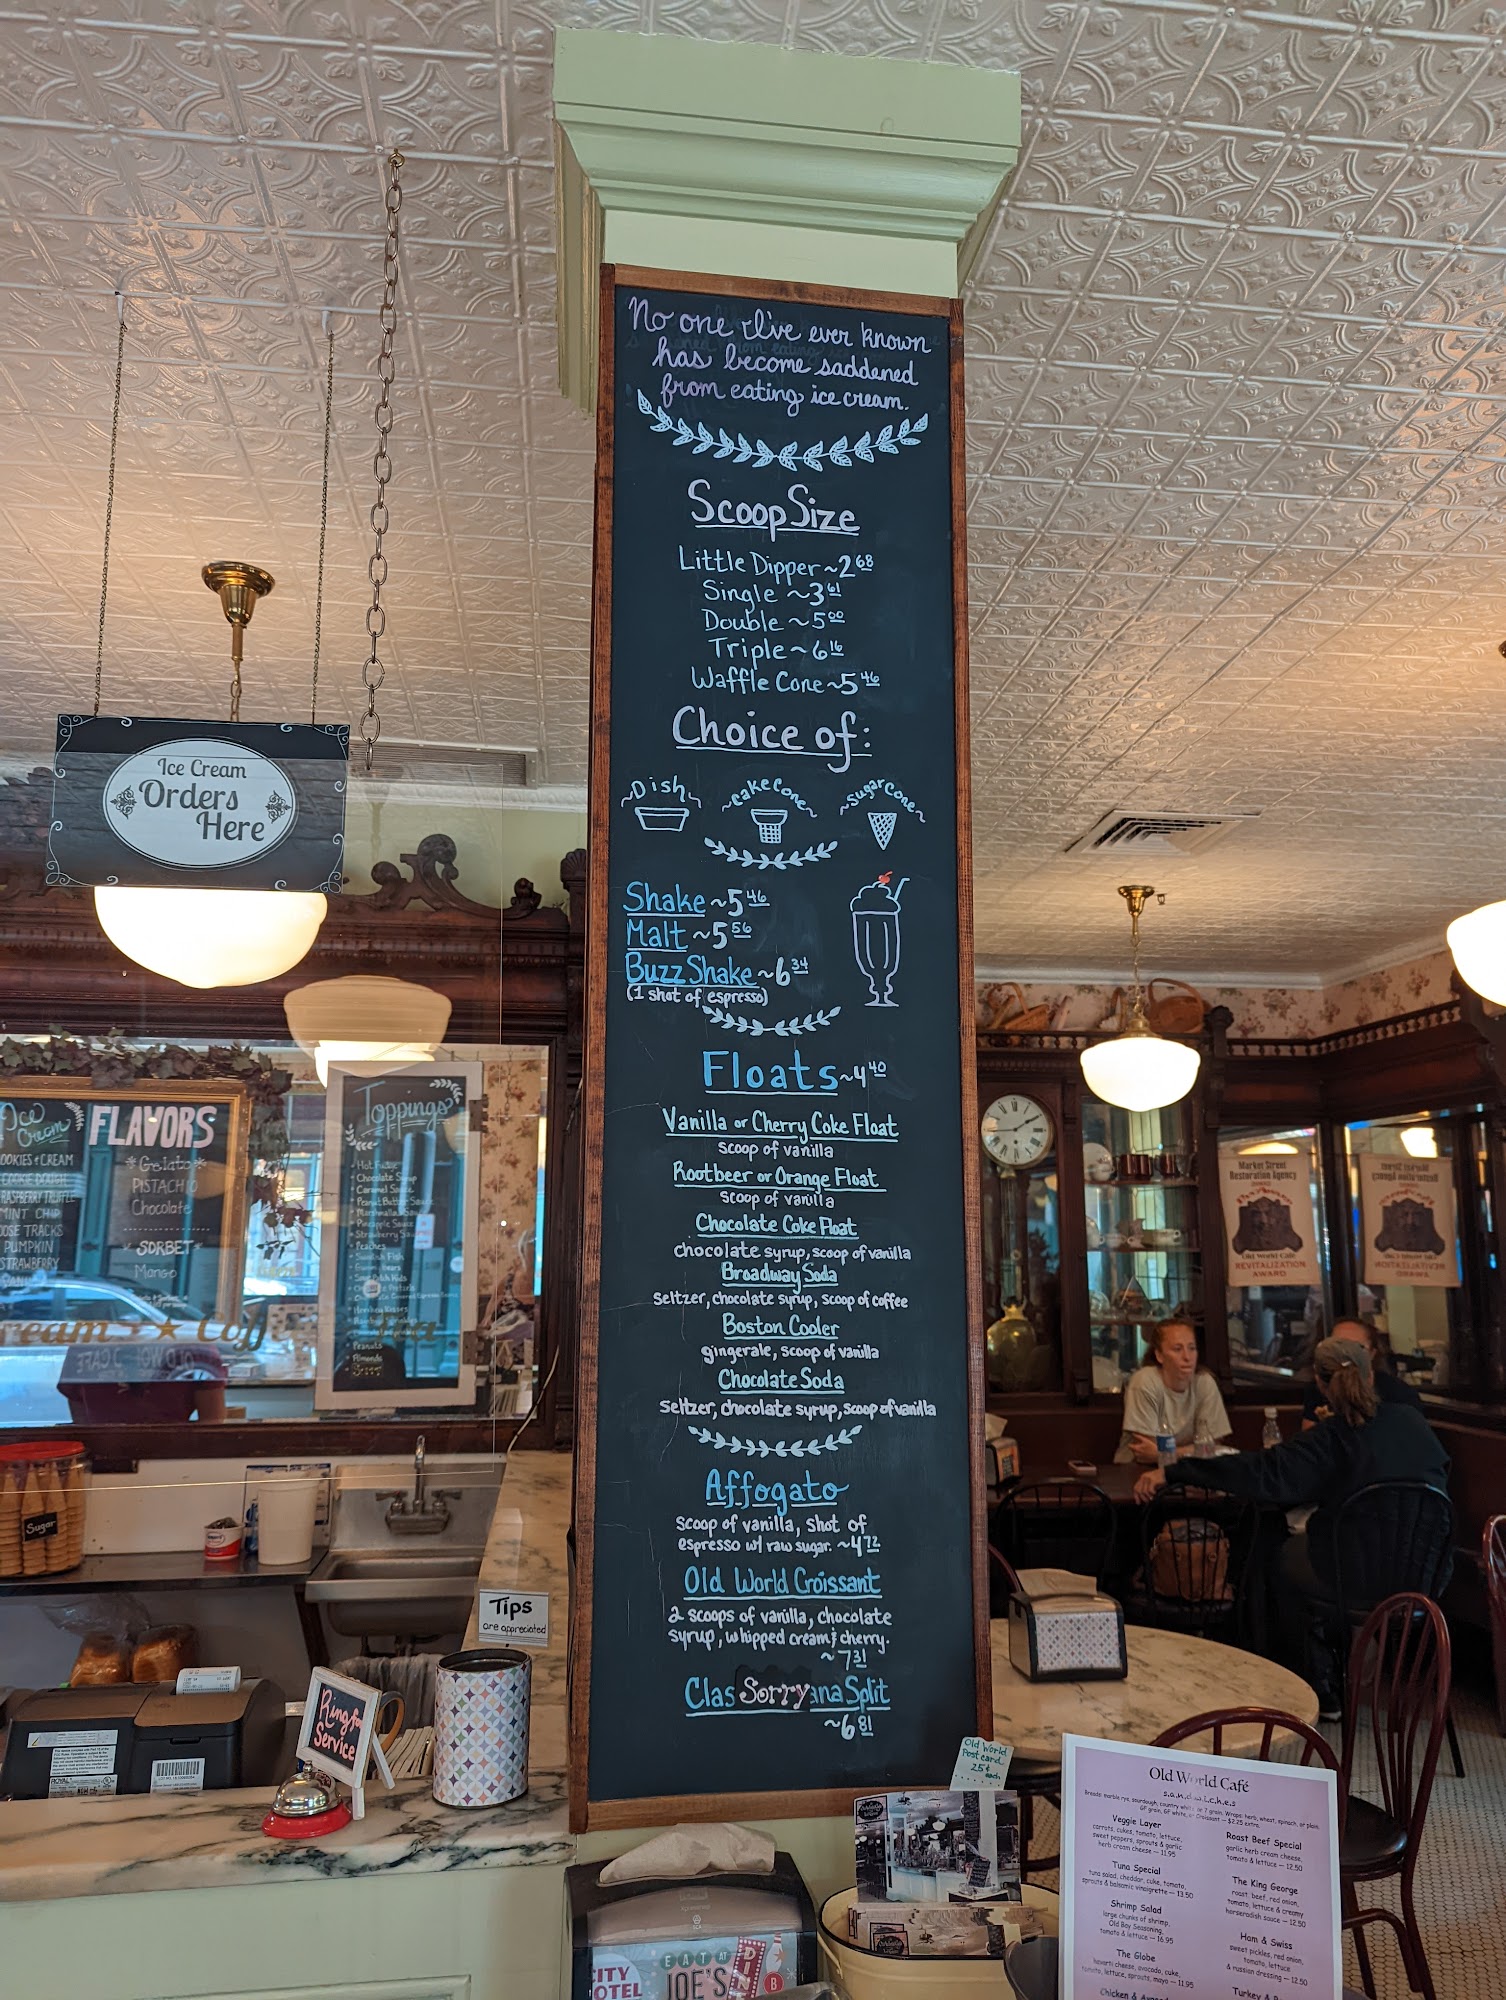 No one I've ever known
has become saddened
from eating ice cream.
Scoop Size
Little Dipper ~ 2 68
Single ~ 3 61
Double ~ 5 00
Triple ~ 6 16
Waffle Cone ~ 5 46
Choice of:
~Dish~
~Cake Cone~
~Sugar Cone~
Shake ~ 5 46
Malt ~ 5 56
Buzz Shake ~ 6 34
(1 shot of espresso)
Floats ~ 4 40
Vanilla or Cherry Coke Float
scoop of vanilla
Rootbeer or Orange Float
scoop of vanilla
Chocolate Coke Float
chocolate syrup, scoop of vanilla
Broadway Soda
seltzer, chocolate syrup, scoop of coffee
Boston Cooler
gingerale, scoop of vanilla
Chocolate Soda
seltzer, chocolate syrup, scoop of vanilla
Affogato
scoop of vanilla, shot of
espresso w/ raw sugar. ~4 72
Old World Croissant
2 scoops of vanilla, chocolate
syrup, whipped cream & cherry.
~ 7 31
Clas Sorry ana Split
~6 81
Ice Cream
Orders
Here
Ice
Cream
FLAVORS
OOKIES & CREAM
COOKIE DOUGH
RASPBERRY TRUFFLE
MINT CHIP
OOSE TRACKS
PUMPKIN
STRAWBERRY
*Gelato*
PISTACHIO
Chocolate
SORBET
Mango
Toppings
Hot Fudge
Chocolate Syrup
Caramel Sauce
Peanut Butter Sauce
Marshmallow Sauce
Pineapple Sauce
Strawberry Sauce
Peaches
Swedish Fish
Gummi bears
Sour Patch Kids
Hershey Kisses
Peanuts
Almonds
ream ★ Coff
Sugar
Tips
are appreciated
Ring for
Service
Old World
Post card
25¢
each
Market Street
Restoration Agency
Old World Café
REVITALIZATION
AWARD
EAT AT
JOE'S
DIN
B
CITY
OTEL
Old World Café
s.a.n.d.w.i.c.h.e.s
Veggie Layer
carrots, cukes, tomato, lettuce,
sweet peppers, sprouts & garlic
herb cream cheese — 11.95
Tuna Special
tuna salad, cheddar, cuke, tomato,
sprouts & balsamic vinaigrette — 13.50
Shrimp Salad
large chunks of shrimp,
Old Bay Seasoning,
tomato & lettuce — 16.95
The Globe
havarti cheese, avocado, cuke,
tomato, lettuce, sprouts, mayo — 11.95
Roast Beef Special
garlic herb cream cheese,
tomato & lettuce — 12.50
The King George
roast beef, red onion,
tomato, lettuce & creamy
horseradish sauce — 12.50
Ham & Swiss
sweet pickles, red onion,
tomato, lettuce
& russian dressing — 12.50